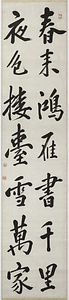 春来鴻雁書千里
夜色樓臺雪萬家